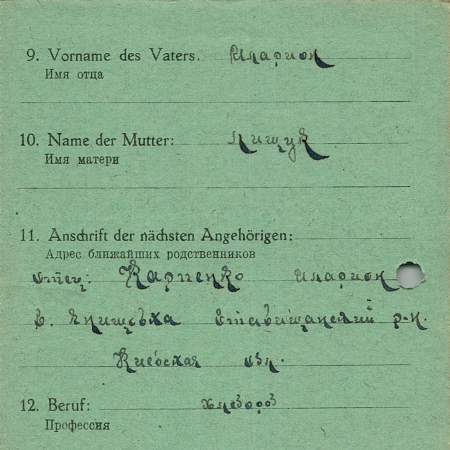 9. Vorname des Vaters. Иларион
Имя отца
10. Name der Mutter: Лищук
Имя матери
11. Anschrift der nächsten Angehörigen:
Адрес ближайших родственников
отец: Карпенко Иларион
Ставищанский р-н.
Киевская обл.
12. Beruf: хлебороб
Профессия